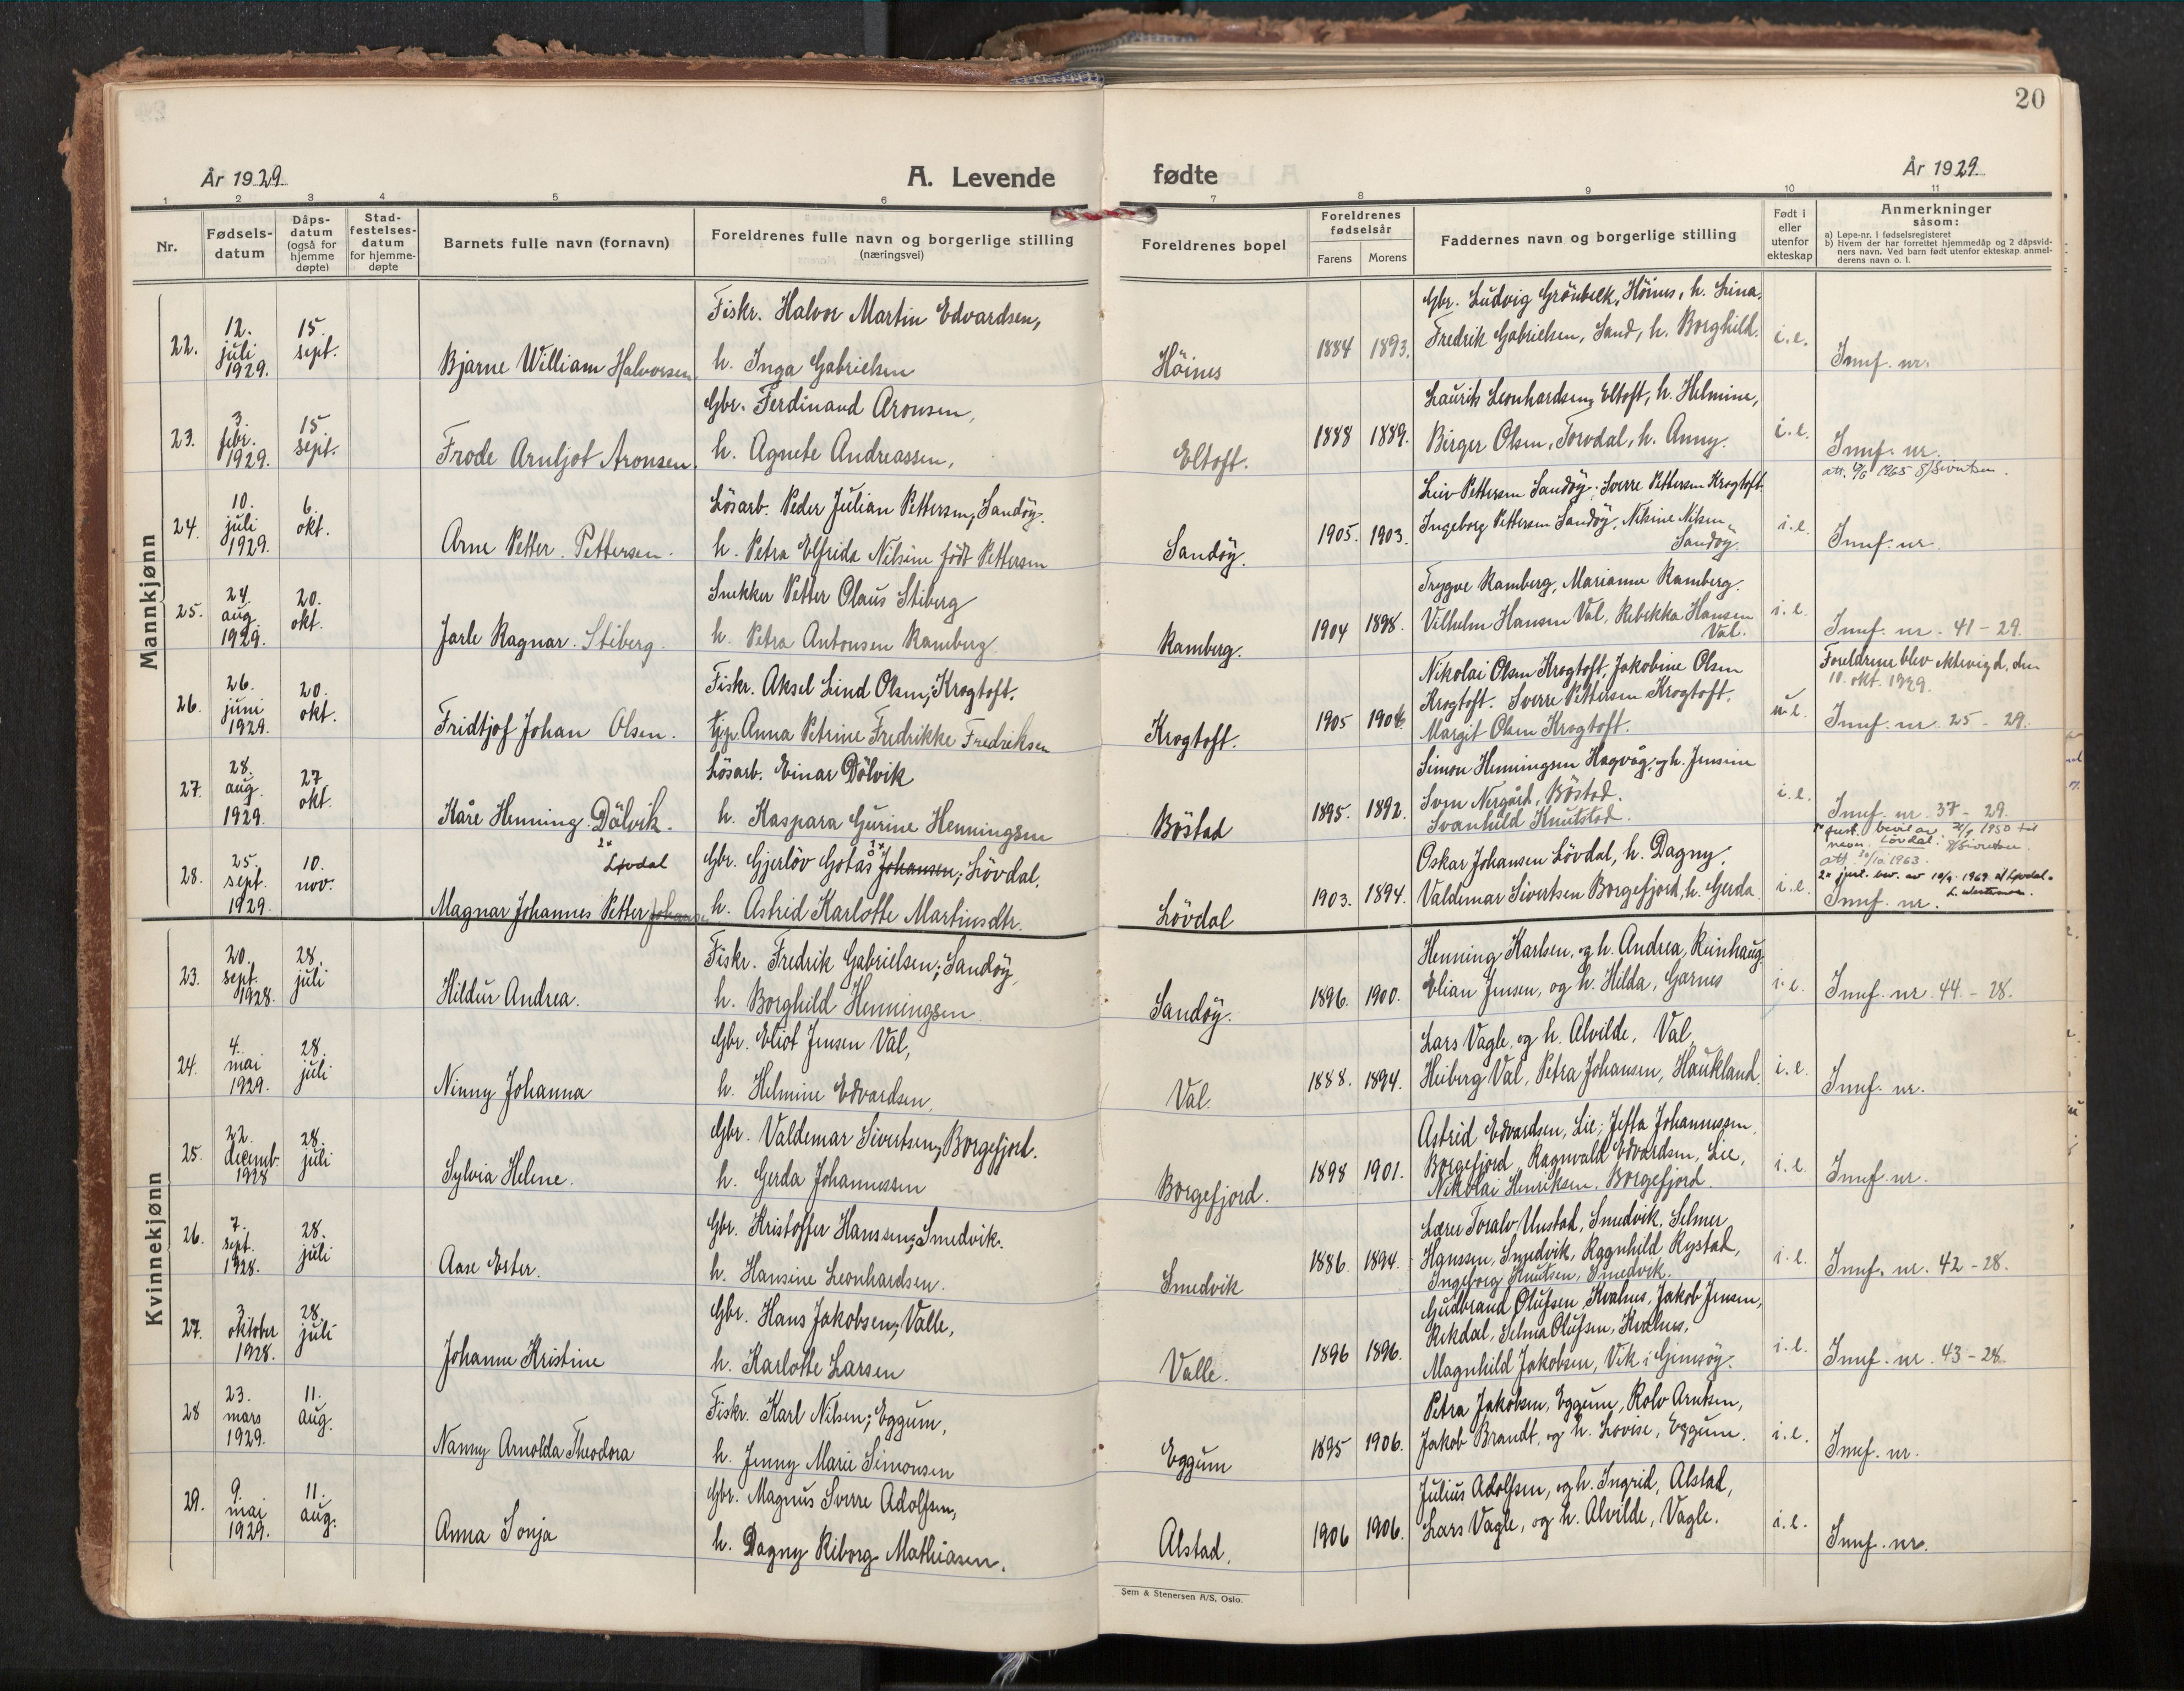 20
År 1929.
A. Levende
fødte
År 1929.
1 2 3 4 5 6 7 8 9 10 11
Nr.
Fødsels-
datum
Dåps-
datum
(også for
hjemme
døpte)
Stad-
festelses-
datum
for hjemme-
døpte
Barnets fulle navn (fornavn)
Foreldrenes fulle navn og borgerlige stilling
(næringsvei)
Foreldrenes bopel
Foreldrenes
fødselsår
Farens Morens
Faddernes navn og borgerlige stilling
Født i
eller
utenfor
ekteskap
Anmerkninger
såsom:
a) Løpe-nr. i fødselsregisteret
b) Hvem der har forrettet hjemmedåp og 2 dåpsvid-
ners navn. Ved barn født utenfor ekteskap anmel-
derens navn o. l.
Mannkjønn
22.
12.
juli
1929.
15.
sept.
Bjarne William Halvorsen.
Fiskr. Halvor Martin Edvardsen,
h. Inga Gabrielsen
Höines
1884 1893.
Gbr. Ludvig Grönbekk, Höines, h. Lina.
Fredrik Gabrielsen, Sand, h. Borghild.
i.e.
Innf. nr.
23.
3.
febr.
1929.
15.
sept.
Frode Arnljot Aronsen.
Gbr. Ferdinand Aronsen,
h. Agnete Andreassen,
Eltoft.
1888 1889.
Laurits Leonhardsen, Eltoft, h. Helmine,
Birger Olsen, Torvdal, h. Anny.
i.e.
Innf. nr.
att. 4/6 1965 S/Sivertsen.
24.
10.
juli
1929.
6.
okt.
Arne Petter. Pettersen.
Lösarb. Peder Julian Pettersen, Sandöy.
h. Petra Elfrida Nilsine født Pettersen
Sandöy.
1905. 1903.
Leiv Pettersen Sandöy, Sverre Pettersen Krogtoft.
Ingeborg Pettersen Sandöy, Nikine Nilsen,
Sandöy.
i.e.
Innf. nr.
25.
24.
aug.
1929.
20.
okt.
Jarle Ragnar. Stiberg.
Snekker Petter Olaus Stiberg
h. Petra Antonsen Ramberg.
Ramberg.
1904 1898.
Trygve Ramberg, Marianne Ramberg.
Vilhelm Hansen Val, Rebekka Hansen
Val.
i.e.
Innf. nr. 41-29.
26.
26.
juni
1929.
20.
okt.
Fridtjof Johan Olsen.
Fiskr. Aksel Lind Olsen, Krogtoft.
tjp. Anna Petrine Fredrikke Fredriksen
Krogtoft.
1905 1906.
Nikolai Olsen Krogtoft, Jakobine Olsen
Krogtoft. Sverre Pettersen Krogtoft.
Margit Olsen Krogtoft.
u.e.
Foreldrene blev ektevigd, den
10. okt. 1929.
Innf. nr. 25-29.
27.
28.
aug.
1929.
27.
okt.
Kåre Henning. Dölvik.
Lösarb. Einar Dölvik
h. Kaspara Gurine Henningsen
Böstad
1895. 1892.
Simon Henningsen Hagvåg, og h. Jensine
Sven Nergård, Böstad.
Svanhild Knutstad.
i.e.
Innf. nr. 37-29.
28.
25.
sept.
1929.
10.
nov.
2x
Løvdal
Magnar Johannes Petter Johansen
Gbr. Gjerløv Gotås 1x Johansen, Lövdal.
h. Astrid Karlotte Martinsdtr.
Lövdal
1903. 1894.
Oskar Johansen Lövdal, h. Dagny.
Valdemar Sivertsen Borgefjord, h. Gerda
i.e.
1950 til
navn Lövdal. S/Sivertsen.
att. 1963.
2x just. bev. av 10/9 1969 Løvdal.
Innf. nr.
Kvinnekjønn
23.
20.
sept.
1928.
28.
juli
Hildur Andrea.
Fiskr. Fredrik Gabrielsen, Sandöy,
h. Borghild Henningsen.
Sandöy.
1896. 1900.
Henning Karlsen, og h. Andrea, Reinhaug.
Elian Jensen, og h. Hilda, Garnes
i.e.
Innf. nr. 44.-28.
24.
4.
mai
1929.
28.
juli
Ninny Johanna
Gbr. Eliot Jensen Val,
h. Helmine Edvardsen.
Val.
1888. 1894.
Lars Vagle, og h. Alvilde, Val,
Heiberg Val, Petra Johansen, Haukland.
i.e.
Innf. nr.
25.
22.
decemb.
1928
28.
juli
Sylvia Helene.
Gbr. Valdemar Sivertsen, Borgefjord.
h. Gerda Johannessen
Borgefjord.
1898 1901.
Astrid Edvardsen, Lie, Jetta Johannessen,
Borgefjord, Ragnvald Edvardsen, Lie,
Nikolai Henriksen, Borgefjord.
i.e.
Innf. nr.
26.
7.
sept.
1928.
28.
juli
Aase Ester.
Gbr. Kristoffer Hanssen, Smedvik.
h. Hansine Leonhardsen.
Smedvik
1886. 1894.
Lærer Toralv Unstad, Smedvik, Selmer
Hanssen, Smedvik, Ragnhild Rystad,
Ingeborg Knutsen, Smedvik.
i.e.
Innf. nr. 42-28.
27.
3.
oktober
1928.
28.
juli
Johanne Kristine
Gbr. Hans Jakobsen, Valle,
h. Karlotte Larsen
Valle.
1896 1896.
Gudbrand Olufsen, Kvalnes, Jakob Jensen,
Rekdal, Selma Olufsen, Kvalnes,
Magnhild Jakobsen, Vik i Gimsöy.
i.e.
Innf. nr. 43-28.
28
23.
mars
1929.
11.
aug.
Nanny Arnolda Theodora
Fiskr. Karl Nilsen, Eggum,
h. Jenny Marie Simonsen
Eggum
1895 1906.
Petra Jakobsen, Eggum, Rolv Arntsen,
Jakob Brandt, og h. Lovise, Eggum.
i.e.
Innf. nr.
29.
9.
mai
1929.
11.
aug.
Anna Sonja
Gbr. Magnus Sverre Adolfsen,
h. Dagny Riborg Mathiasen.
Alstad,
1906 1906.
Julius Adolfsen, og h. Ingrid, Alstad,
Lars Vagle, og h. Alvilde, Vagle.
i.e.
Innf. nr.
Sem & Stenersen A/S, Oslo.